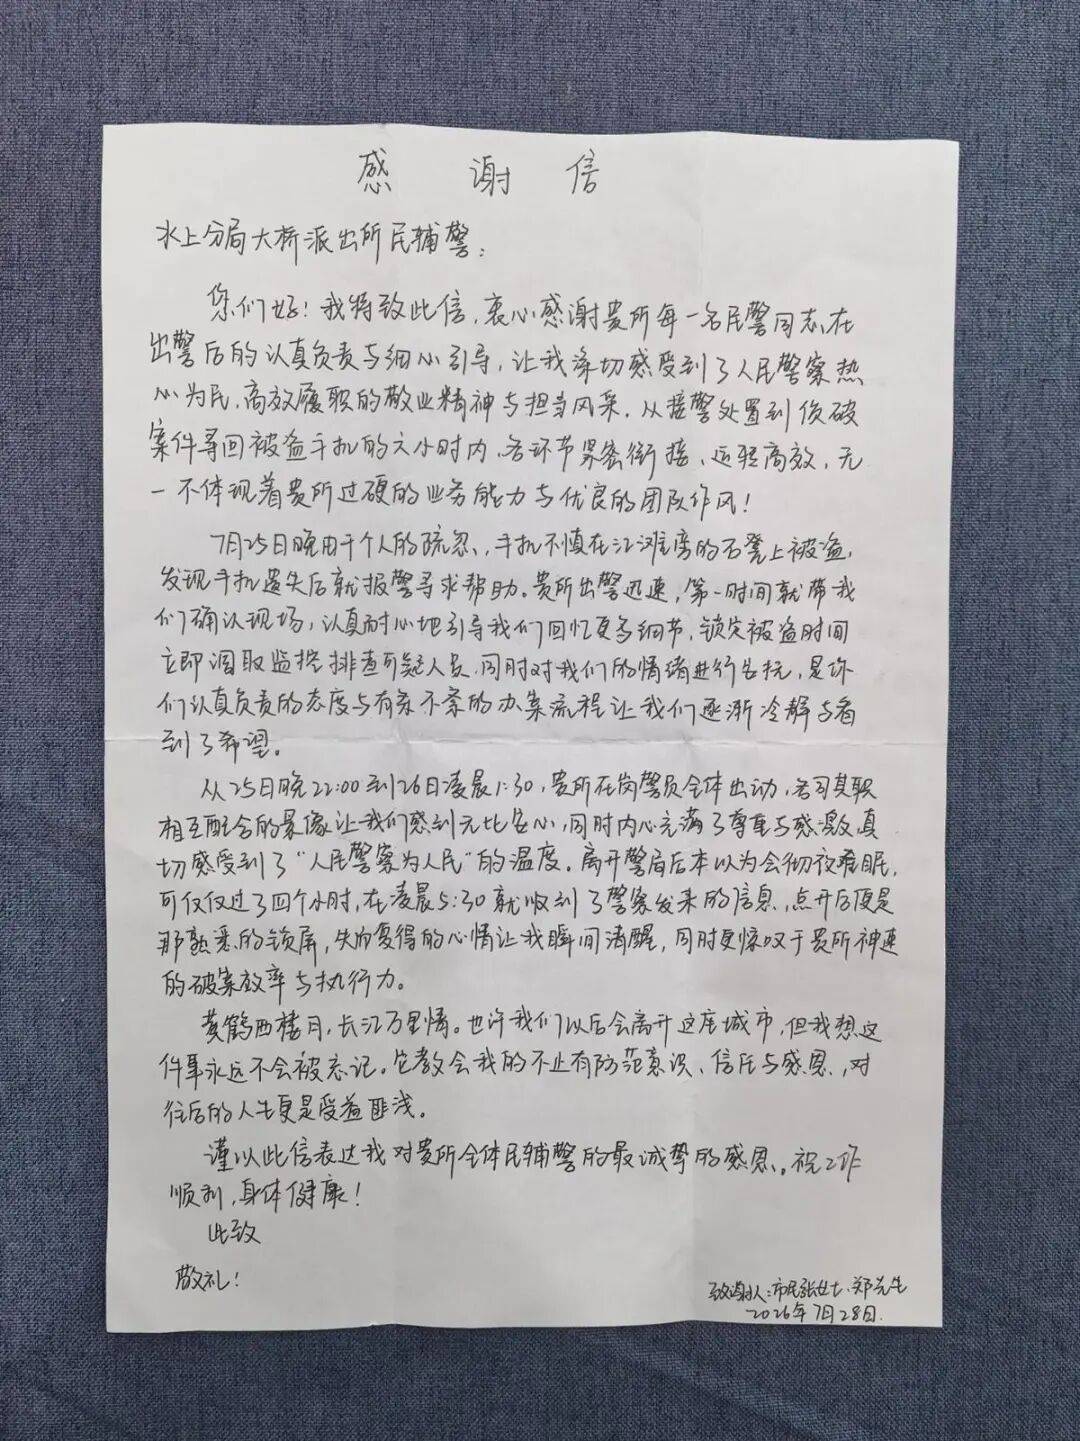 感 谢 信
水上分局大桥派出所民辅警：
您们好！我特致此信，衷心感谢贵所每一名民警同志在
出警后的认真负责与细心引导，让我深切感受到了人民警察热
心为民、高效履职的敬业精神与担当风采。从接警处置到侦破
案件寻回被盗手机的六小时内，各环节紧密衔接、远程高效，无
一不体现着贵所过硬的业务能力与优良的团队作风！
7月25日晚由于个人的疏忽，手机不慎在江滩湾的石凳上被盗，
发现手机遗失后就报警寻求帮助。贵所出警迅速，第一时间就带我
们确认现场，认真耐心地引导我们回忆更多细节，锁定被盗时间
立即调取监控排查可疑人员，同时对我们的情绪进行安抚，是你
们认真负责的态度与有条不紊的办案流程让我们逐渐冷静与看
到了希望。
从25日晚22:00到26日凌晨1:30，贵所在岗警员全体出动，各司其职
相互配合的景像让我们感到无比安心，同时内心充满了尊重与感激，真
切感受到了“人民警察为人民”的温度。离开警局后本以为会彻夜难眠，
可仅仅过了四个小时，在凌晨5:30就收到了警察发来的信息，点开后便是
那熟悉的锁屏，失而复得的心情让我瞬间清醒，同时更惊叹于贵所神速
的破案效率与执行力。
黄鹤西楼月，长江万里情。也许我们以后会离开这座城市，但我想这
件事永远不会被忘记。它教会我的不止有防范意识、信任与感恩，对
往后的人生更是受益匪浅。
谨以此信表达我对贵所全体民辅警的最诚挚的感恩。祝工作
顺利，身体健康！
此致
敬礼！
致谢人：市民张女士、郑先生
2026年7月28日.